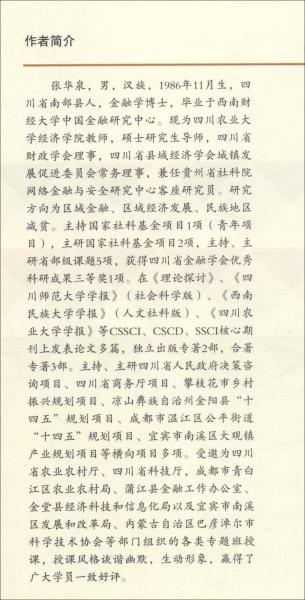 作者简介
张华泉，男，汉族，1986年11月生，四
川省南部县人，金融学博士，毕业于西南财
经大学中国金融研究中心。现为四川农业大
学经济学院教师，硕士研究生导师，四川省
财政学会理事，四川省县域经济学会城镇发
展促进委员会常务理事，兼任贵州省社科院
网络金融与安全研究中心客座研究员。研究
方向为区域金融、区域经济发展、民族地区
减贫。主持国家社科基金项目1项（青年项
目），主研国家社科基金项目2项，主持、主
研省部级课题5项，获得四川省金融学会优秀
科研成果三等奖1项。在《理论探讨》、《四
川师范大学学报》（社会科学版）、《西南
民族大学学报》（人文社科版）、《四川农
业大学学报》等CSSCI、CSCD、SSCI核心期
刊上发表论文多篇，独立出版专著2部，合著
专著3部。主持、主研四川省人民政府决策咨
询项目、四川省商务厅项目、攀枝花市乡村
振兴规划项目、凉山彝族自治州金阳县“十
四五”规划项目、成都市温江区公平街道
“十四五”规划项目、宜宾市南溪区大观镇
产业规划项目等横向项目多项。受邀为四川
省农业农村厅、四川省科技厅，成都市青白
江区农业农村局、蒲江县金融工作办公室、
金堂县经济科技和信息化局以及宜宾市南溪
区发展和改革局、内蒙古自治区巴彦淖尔市
科学技术协会等部门组织的各类专题班授
课，授课风格诙谐幽默，生动形象，赢得了
广大学员一致好评。